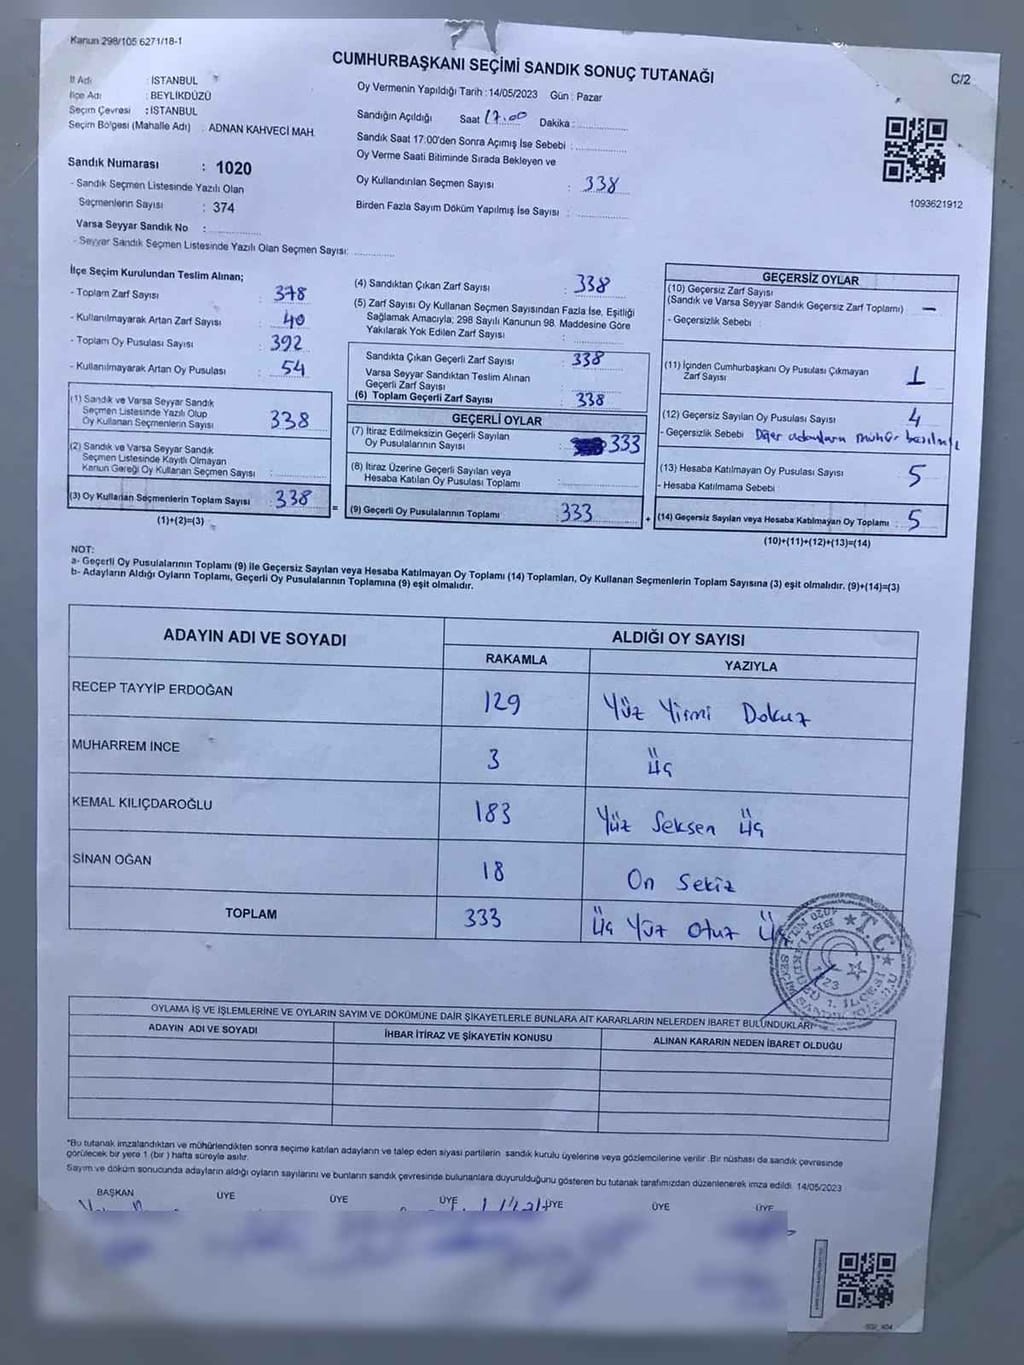 Kanun 298/105 6271/18-1
CUMHURBAŞKANI SEÇİMİ SANDIK SONUÇ TUTANAĞI
C/2
İl Adı : İSTANBUL
İlçe Adı : BEYLİKDÜZÜ
Seçim Çevresi : İSTANBUL
Seçim Bölgesi (Mahalle Adı) : ADNAN KAHVECİ MAH.
Sandık Numarası : 1020
- Sandık Seçmen Listesinde Yazılı Olan
Seçmenlerin Sayısı : 374
Varsa Seyyar Sandık No :
- Seyyar Sandık Seçmen Listesinde Yazılı Olan Seçmen Sayısı:
Oy Vermenin Yapıldığı Tarih : 14/05/2023 Gün : Pazar
Sandığın Açıldığı Saat 17.00 Dakika :
Sandık Saat 17:00'den Sonra Açımış İse Sebebi :
Oy Verme Saati Bitiminde Sırada Bekleyen ve
Oy Kullandırılan Seçmen Sayısı : 338
Birden Fazla Sayım Döküm Yapılmış İse Sayısı :
1093621912
İlçe Seçim Kurulundan Teslim Alınan;
- Toplam Zarf Sayısı : 378
- Kullanılmayarak Artan Zarf Sayısı : 40
- Toplam Oy Pusulası Sayısı : 392
- Kullanılmayarak Artan Oy Pusulası : 54
(1) Sandık ve Varsa Seyyar Sandık
Seçmen Listesinde Yazılı Olup
Oy Kullanan Seçmenlerin Sayısı : 338
(2) Sandık ve Varsa Seyyar Sandık
Seçmen Listesinde Kayıtlı Olmayan
Kanun Gereği Oy Kullanan Seçmen Sayısı :
(3) Oy Kullanan Seçmenlerin Toplam Sayısı : 338
(1)+(2)=(3)
=
(4) Sandıktan Çıkan Zarf Sayısı : 338
(5) Zarf Sayısı Oy Kullanan Seçmen Sayısından Fazla İse, Eşitliği
Sağlamak Amacıyla; 298 Sayılı Kanunun 98. Maddesine Göre
Yakılarak Yok Edilen Zarf Sayısı :
Sandıkta Çıkan Geçerli Zarf Sayısı : 338
Varsa Seyyar Sandıktan Teslim Alınan
Geçerli Zarf Sayısı :
(6) Toplam Geçerli Zarf Sayısı : 338
GEÇERLİ OYLAR
(7) İtiraz Edilmeksizin Geçerli Sayılan
Oy Pusulalarının Sayısı : 333
(8) İtiraz Üzerine Geçerli Sayılan veya
Hesaba Katılan Oy Pusulası Toplamı :
(9) Geçerli Oy Pusulalarının Toplamı : 333
+
GEÇERSİZ OYLAR
(10) Geçersiz Zarf Sayısı
(Sandık ve Varsa Seyyar Sandık Geçersiz Zarf Toplamı) : —
- Geçersizlik Sebebi :
(11) İçinden Cumhurbaşkanı Oy Pusulası Çıkmayan
Zarf Sayısı : 1
(12) Geçersiz Sayılan Oy Pusulası Sayısı : 4
- Geçersizlik Sebebi : Diğer adaylara mühür basılmış
(13) Hesaba Katılmayan Oy Pusulası Sayısı : 5
- Hesaba Katılmama Sebebi :
(14) Geçersiz Sayılan veya Hesaba Katılmayan Oy Toplamı : 5
(10)+(11)+(12)+(13)=(14)
NOT:
a- Geçerli Oy Pusulalarının Toplamı (9) ile Geçersiz Sayılan veya Hesaba Katılmayan Oy Toplamı (14) Toplamları, Oy Kullanan Seçmenlerin Toplam Sayısına (3) eşit olmalıdır. (9)+(14)=(3)
b- Adayların Aldığı Oyların Toplamı, Geçerli Oy Pusulalarının Toplamına (9) eşit olmalıdır.
ADAYIN ADI VE SOYADI
ALDIĞI OY SAYISI
RAKAMLA YAZIYLA
RECEP TAYYİP ERDOĞAN 129 Yüz Yirmi Dokuz
MUHARREM İNCE 3 Üç
KEMAL KILIÇDAROĞLU 183 Yüz Seksen Üç
SİNAN OĞAN 18 On Sekiz
TOPLAM 333 Üç Yüz Otuz Üç
T.C.
OYLAMA İŞ VE İŞLEMLERİNE VE OYLARIN SAYIM VE DÖKÜMÜNE DAİR ŞİKAYETLERLE BUNLARA AİT KARARLARIN NELERDEN İBARET BULUNDUKLARI
ADAYIN ADI VE SOYADI
İHBAR İTİRAZ VE ŞİKAYETİN KONUSU
ALINAN KARARIN NEDEN İBARET OLDUĞU
"Bu tutanak imzalandıktan ve mühürlendikten sonra seçime katılan adayların ve talep eden siyasi partilerin sandık kurulu üyelerine veya gözlemcilerine verilir .Bir nüshası da sandık çevresinde
görülecek bir yere 1 (bir ) hafta süreyle asılır.
Sayım ve döküm sonucunda adayların aldığı oyların sayılarını ve bunların sandık çevresinde bulunanlara duyurulduğunu gösteren bu tutanak tarafımızdan düzenlenerek imza edildi. 14/05/2023
BAŞKAN ÜYE ÜYE ÜYE ÜYE ÜYE ÜYE